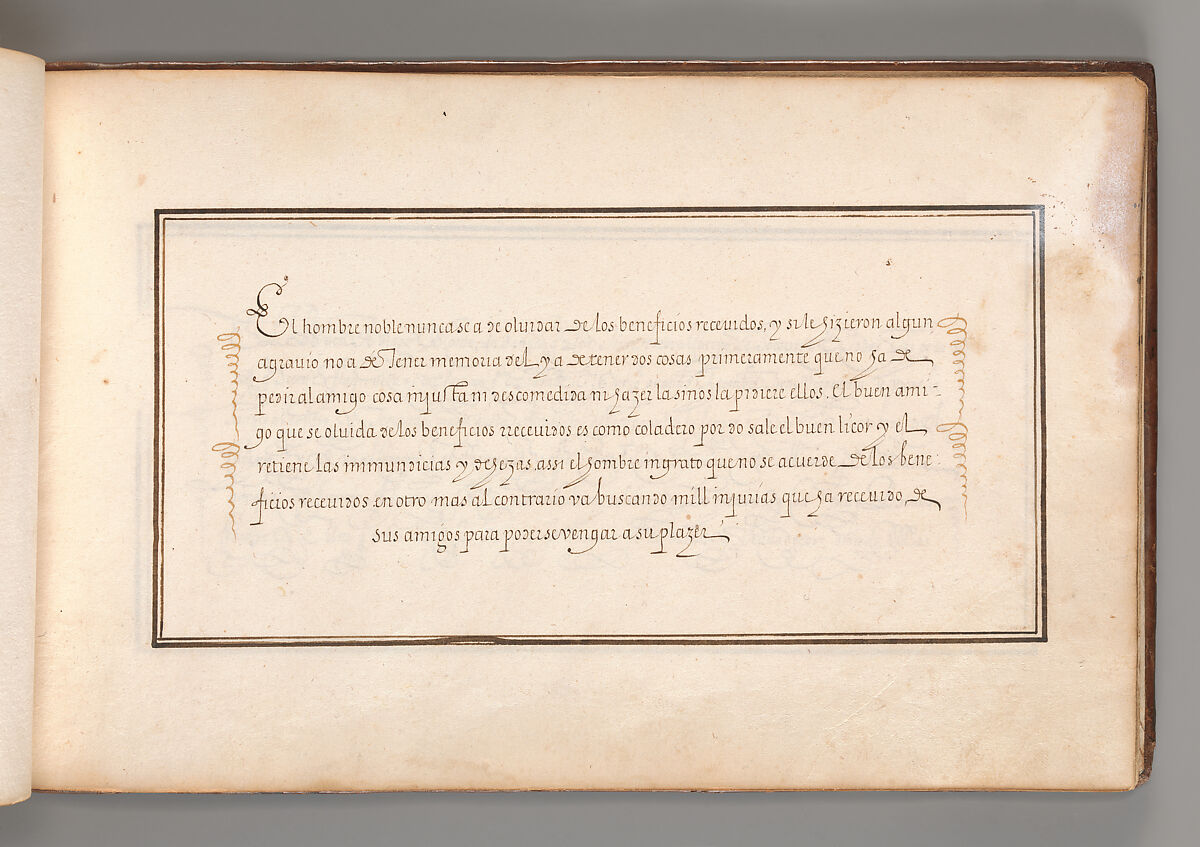 El hombre noble nunca se a de olvidar de los beneficios recevidos, y si le hizieron algun
agravio no a de tener memoria del y a de tener dos cosas primeramente que no ha de
pedir al amigo cosa injusta ni descomedida ni hazer la si nos la pidiere ellos. El buen ami-
go que se olvida de los beneficios rrecevidos es como coladero por do sale el buen licor y el
retiene las immundicias y dehezas. assi el hombre ingrato que no se acuerde de los bene-
ficios recevidos en otro mas al contrario va buscando mill injurias que ha recevido de
sus amigos para poderse vengar a su plazer